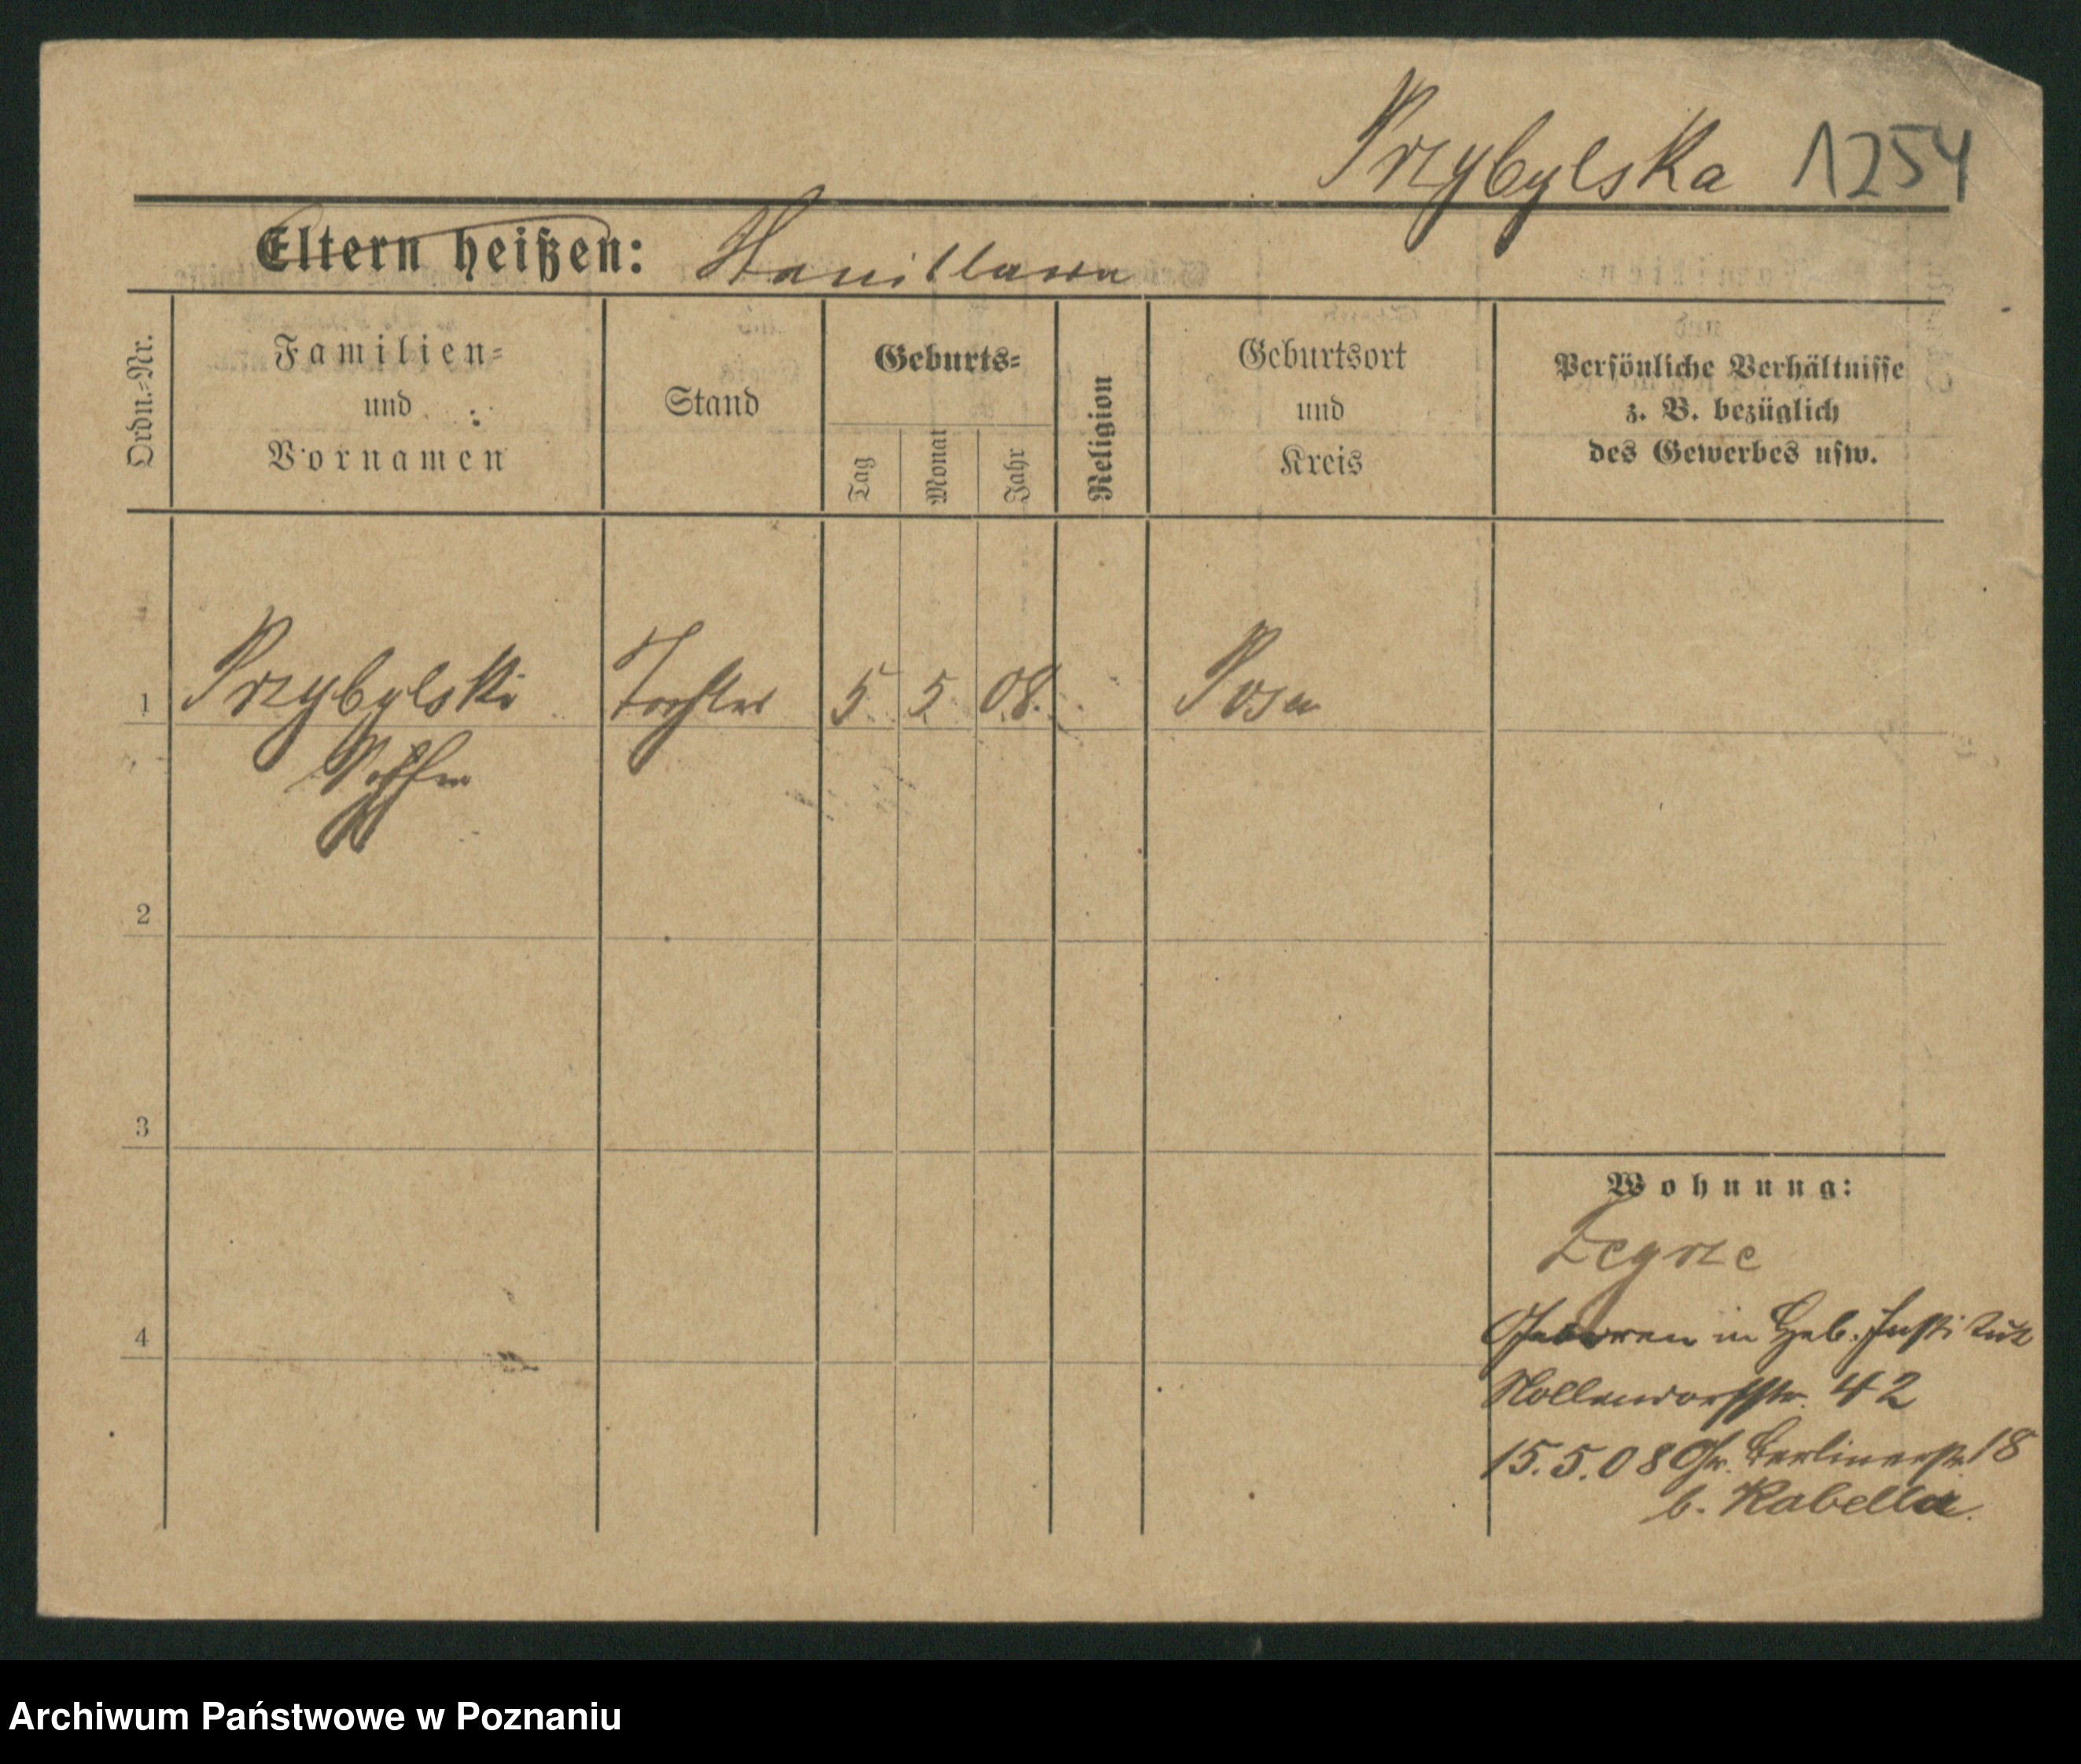 Przybylska 1254
Eltern heißen: Stanislawa
Ordn.-Nr.
Familien-
und
Vornamen
Stand
Geburts-
Tag
Monat
Jahr
Religion
Geburtsort
und
Kreis
Persönliche Verhältnisse
z. B. bezüglich
des Gewerbes usw.
1 Przybylski Tochter 5. 5. 08. Posen
2
3
Wohnung:
Zegrze
4
Geboren in Heb. Institut
Nollendorfstr. 42
15.5.08 Gr. Berlinerstr. 18
b. Kabella.
Archiwum Państwowe w Poznaniu